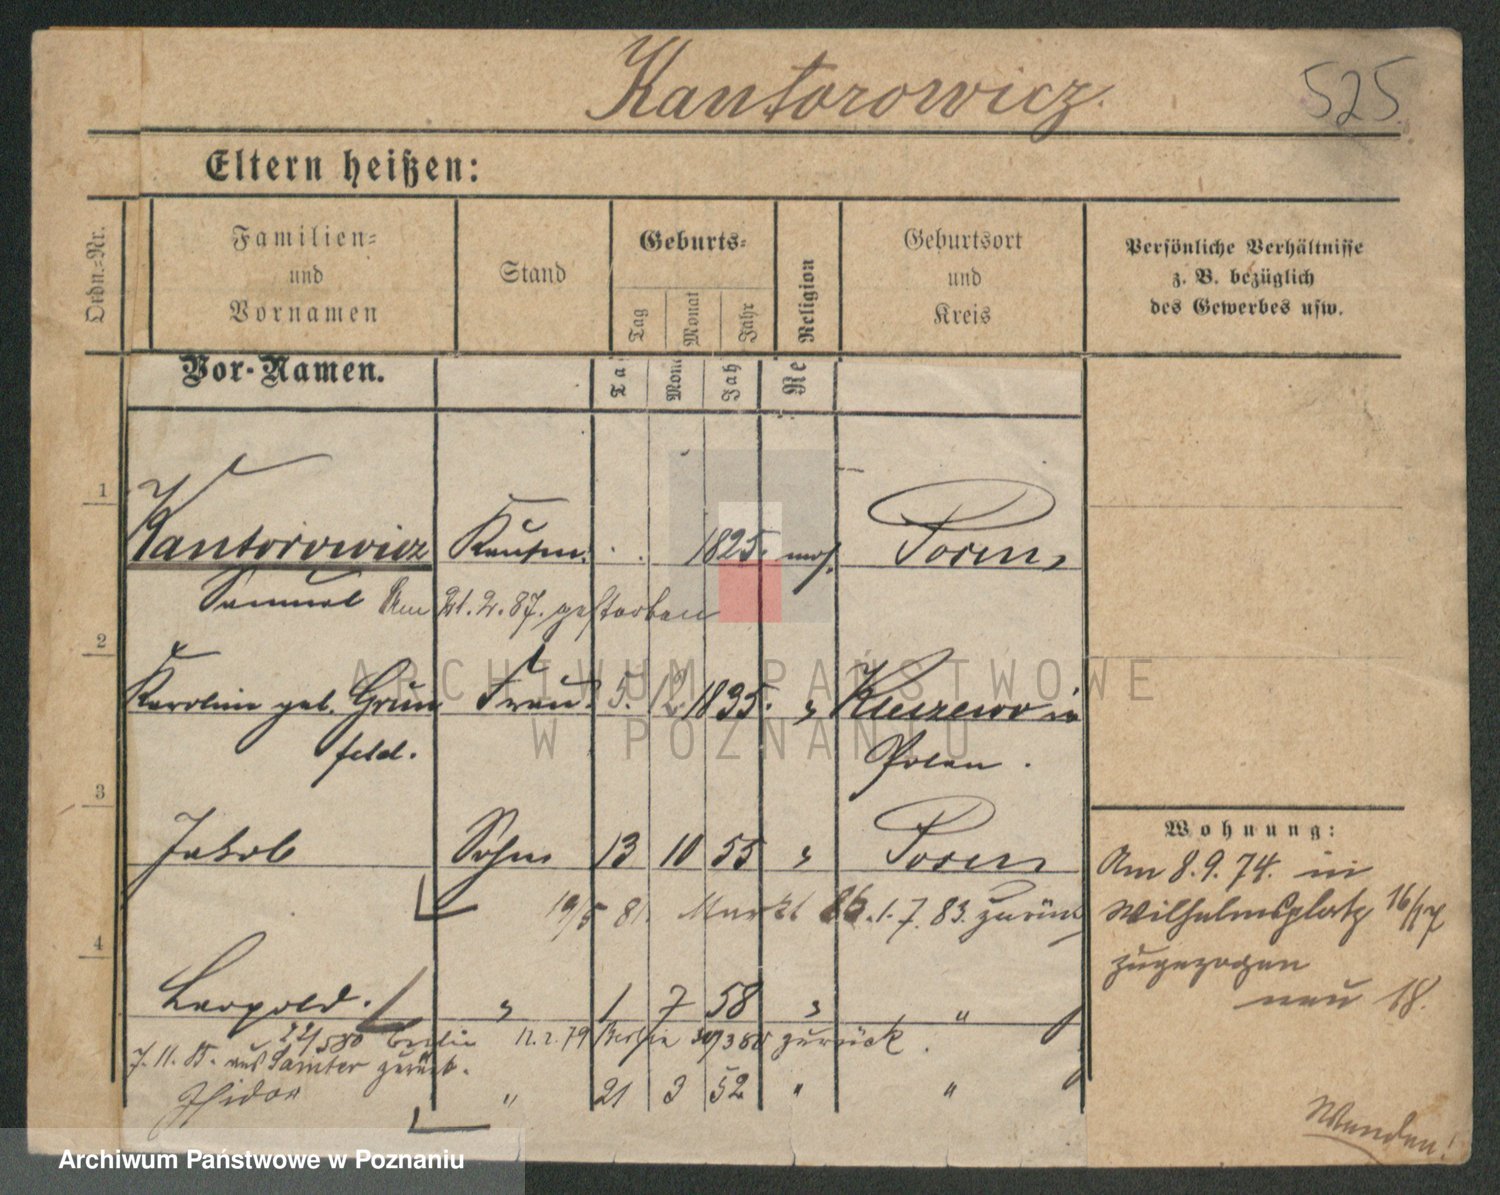 Kantorowicz.
525
Eltern heißen:
Ordn.=Nr.
Familien=
und
Vornamen
Stand
Geburts=
Tag
Monat
Jahr
Religion
Geburtsort
und
Kreis
Persönliche Verhältnisse
z. B. bezüglich
des Gewerbes usw.
Vor-Namen.
Ta
Mon
Jah
Re
1
Kantorowicz Kaufm. 1825. mos. Posen,
Samuel Am 21.2.87. gestorben
2
Karolin geb. Grün Frau 5. 12. 1835. " Kleczewo in
feld. Polen.
3
Jakob Sohn 13 10 55 " Posen
19/5 81. Markt 86. 1.7.83. zurück
4
Leopold. " 1 7 58 " "
22/5 80 Berlin 12.2.79 Berlin 30/3 80 zurück.
7.11.85. aus Samter zurück.
Isidor " 21 3 52 " "
Wohnung:
Am 8.9.74. in
Wilhelmsplatz 16/17
zugezogen
neu 18.
Wenden!
ARCHIWUM PAŃSTWOWE
W POZNANIU
Archiwum Państwowe w Poznaniu